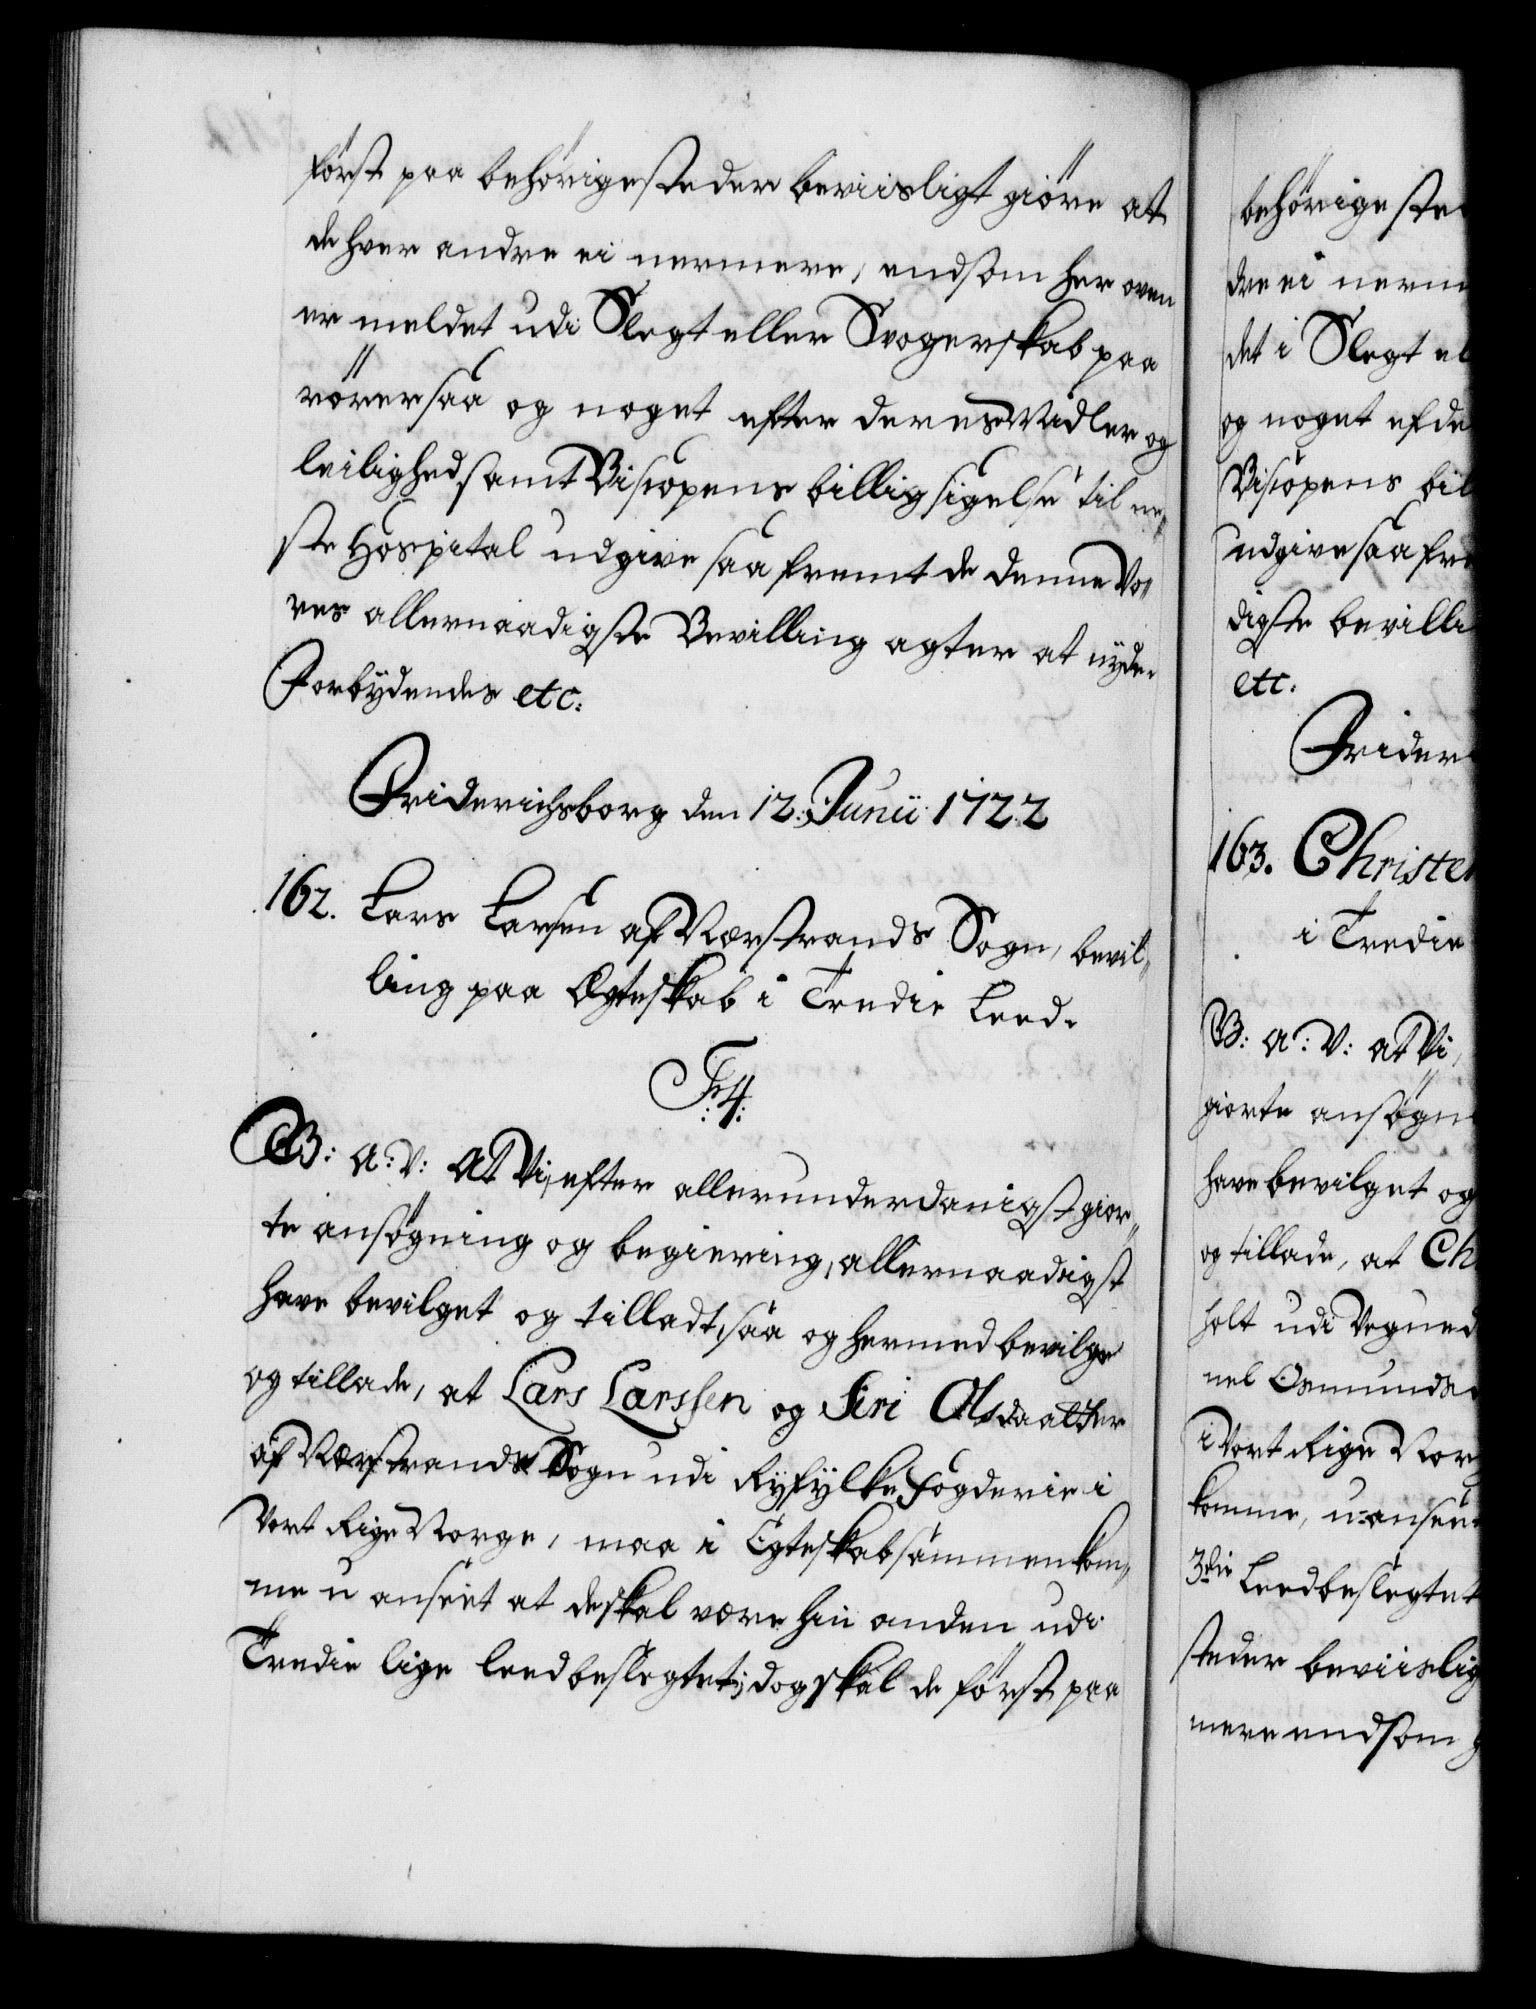 först paa behörige steder beviisligt giöre at
de hver andre ei nermere, end som her oven
er meldet udi Slegt eller Svogerskab paa
rörer saa og noget efter deres Midler og
leilighed samt Biscopens billig sigelse til ne„
ste Hospital udgive saa fremt de denne Vo„
res allernaadigste Bevilling agter at nyde.
Forbydendes etc:
Friderichsborg den 12. Junii 1722
162. Lars Larsen af Nerstrands Sogn, bevil„
ling paa Egteskab i Tredie Leed.
F:4:
G: A: V: At Vi, efter allerunderdanigst gior„
te ansögning og begiering, allernaadigst
have bevilget og tilladt, saa og hermed bevilge
og tillade, at Lars Larssen og Siri Olsdaatter
af Nerstrands Sogn udi Ryfylke Fogderie i
Vort Rige Norge, maa i Egteskab sammenkom„
me u anseet at de skal være hin anden udi
Tredie lige leed beslegtet; dog skal de först paa
behörige sted
dre ei nerm
det i Slegt el
og noget ef de
Biscopens bil
udgive saa fre
digste bevilli
etc:
Frider
163. Christen
i Tredie
G: A: V: At Vi,
giorte ansögn
have bevilget og
og tillade, at Ch
holt udi Vegned
nel Osmunds
i Vort Rige Nor
komme, u-anseet
3die Leed beslegtet
steder beviislig
mere end som h